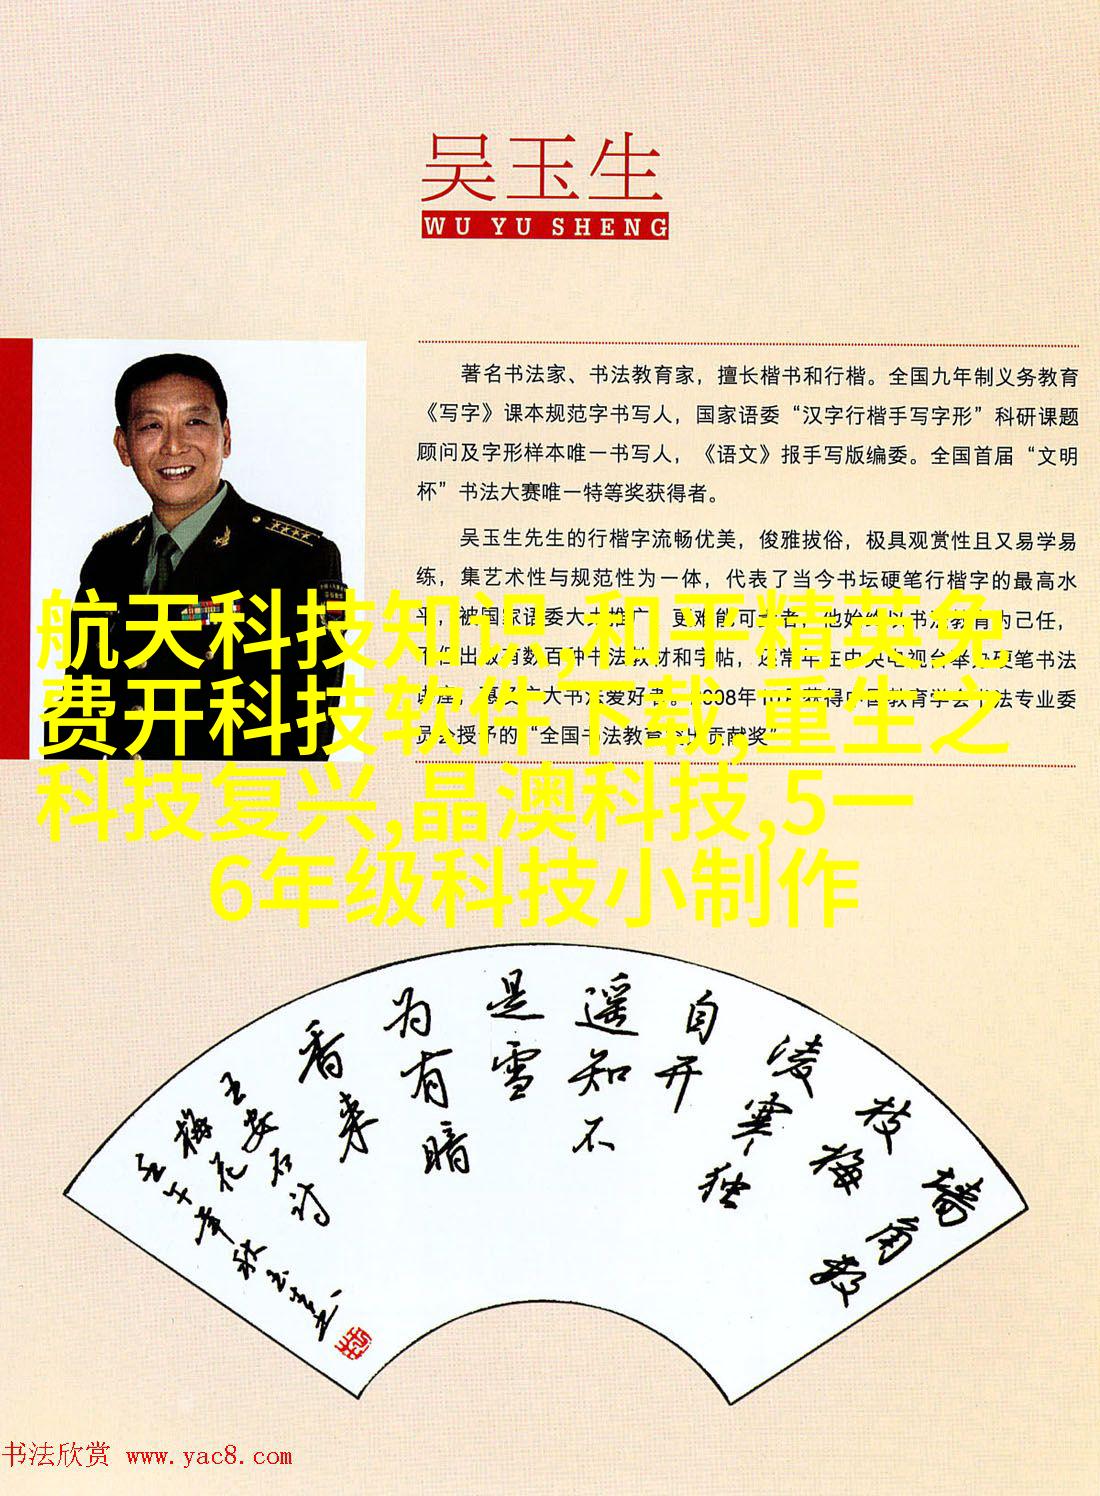 吴玉生
WU YU SHENG
著名书法家、书法教育家，擅长楷书和行楷。全国九年制义务教育
《写字》课本规范字书写人，国家语委“汉字行楷手写字形”科研课题
顾问及字形样本唯一书写人，《语文》报手写版编委。全国首届“文明
杯”书法大赛唯一特等奖获得者。
吴玉生先生的行楷字流畅优美，俊雅拔俗，极具观赏性且又易学易
练，集艺术性与规范性为一体，代表了当今书坛硬笔行楷字的最高水
航天科技知识,和平精英免
费开科技软件下载,重生之
科技复兴,晶澳科技,5一
6年级科技小制作
墙角数
枝梅
凌寒独
自开
遥知不
是雪
为有暗
香来
王安石诗
梅花
书法欣赏 www.yac8.com